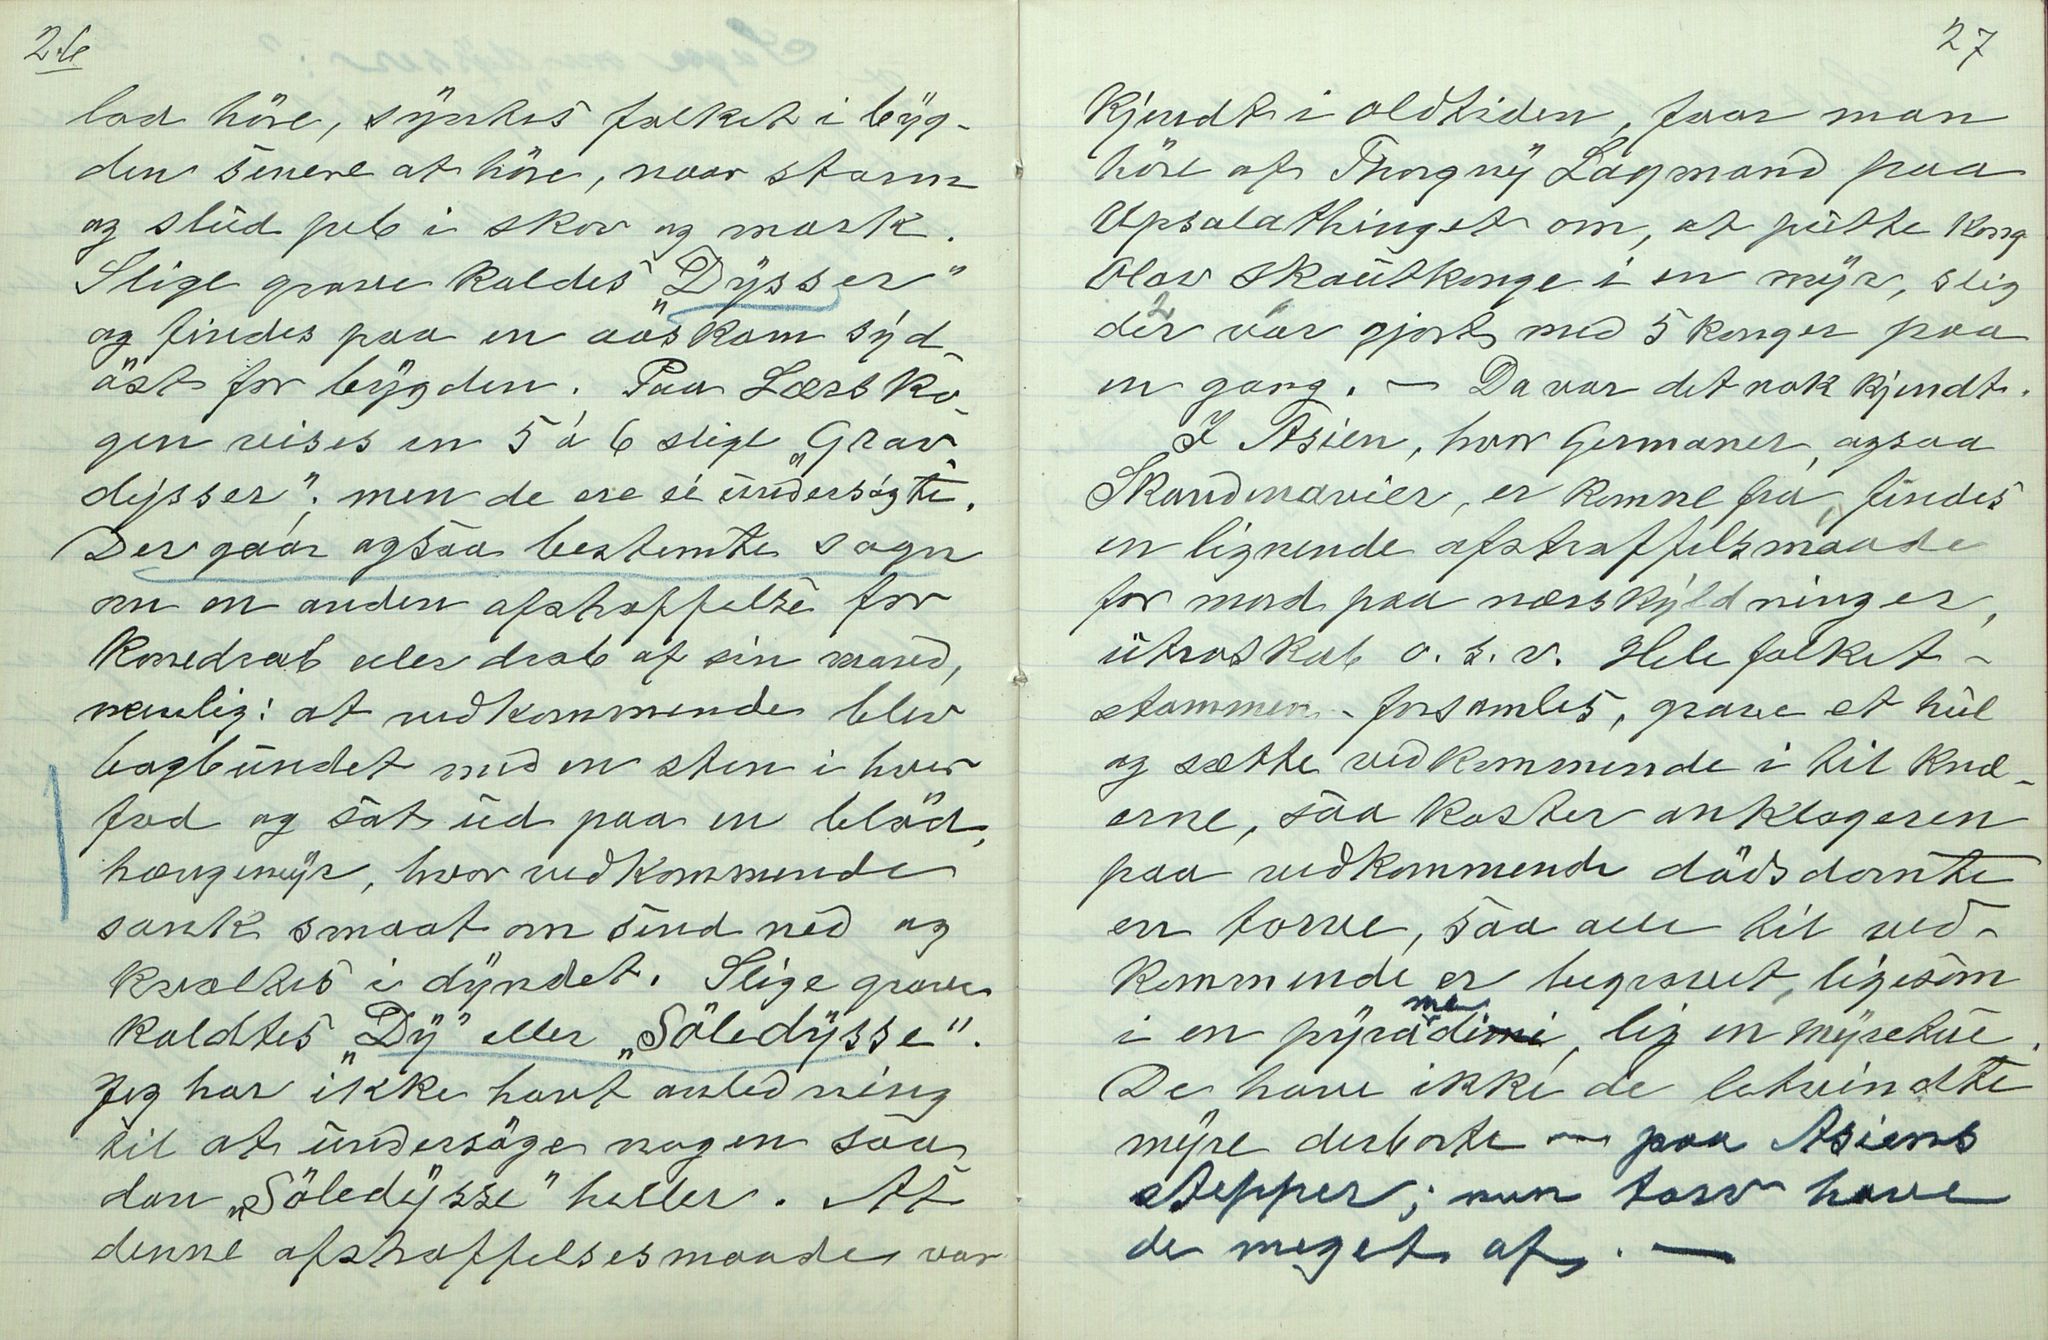 26
lod höre, sÿntes folket i bÿg-
den senere at höre, naar storm
og slud peb i skov og mark.
Slige grave kaldes „Dÿsser"
og findes paa en aaskam sÿd-
öst for bÿgden. Paa Lærsko-
gen vises en 5 à 6 slige „Grav-
dÿsser", men de ere ei undersögte.
Der gaar ogsaa bestemte sagn
om en anden afstraffelse for
konedrab eller drab af sin mand,
nemlig: at vedkommende blev
bagbundet med en sten i hver
fod og sat ud paa en blöd,
hængemÿr, hvor vedkommende
sank smaat om send ned og
kvaltes i dÿndet. Slige grave
kaldtes „Dÿ" eller „Söledÿsse".
Jeg har ikke havt anledning
til at undersöge nogen saa
dan „Söledÿsse" heller. At
denne afstraffelsesmaade var
27
kjendt i oldtiden, faar man
höre af Thorgnÿ Lagmand paa
Upsalathinget om, at putte Kong
Olav Skautkonge i en mÿr, slig
der var gjort med 5 konger paa
en gang. — Da var det nok kjendt.
I Asien, hvor Germaner, ogsaa
Skandinavier, er komne fra, findes
en lignende afstraffelsmaade
for mord paa nærskÿldninger,
utroskab o. s. v. Hele folket-
stammen - forsamles, grave et hul
og sætte vedkommende i til knæ-
erne, saa kaster anklageren
paa vedkommende dödsdomte
en torve, saa alle til ved-
kommende er begravet, ligesom
i en pÿramedi, lig en mÿretue.
De have ikke de letvindte
mÿre derborte — paa Asiens
stepper; men torv have
de meget af. —